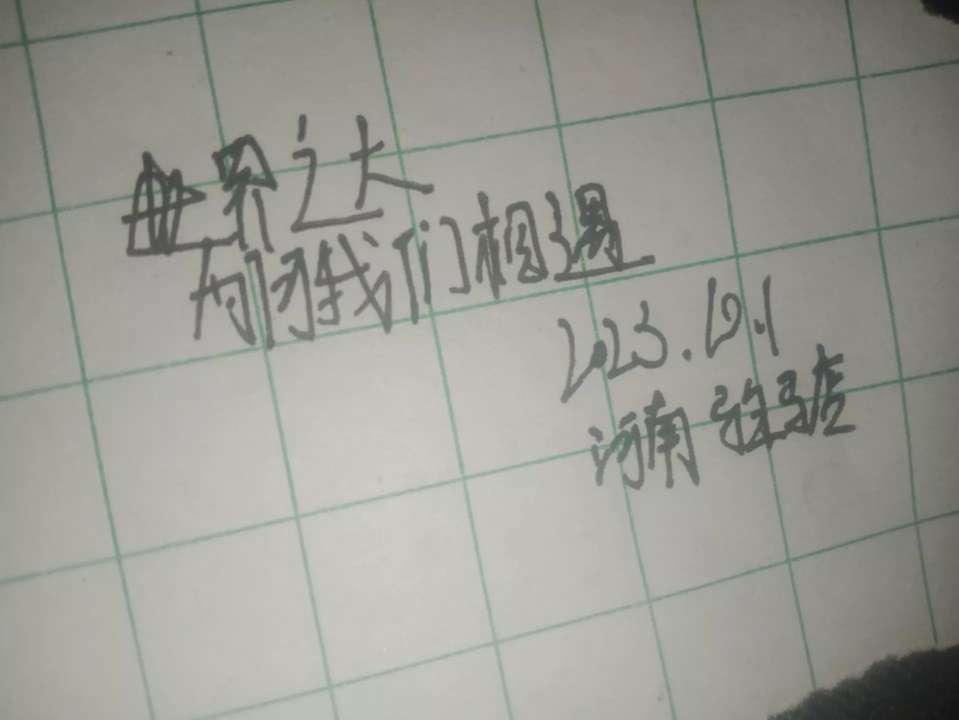 世界之大
为何我们相遇
2023.10.1
河南 驻马店